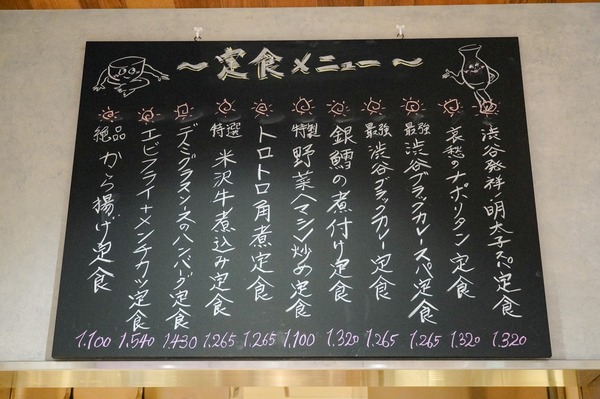 ～定食メニュー～
渋谷発祥・明太子スパ定食
1.320
哀愁のナポリタン定食
1.320
最強渋谷ブラックカレースパ定食
1.265
最強渋谷ブラックカレー定食
1.265
銀鱈の煮付け定食
1.320
特製野菜ヘマシン炒め定食
1.100
トロトロ角煮定食
1.265
特選米沢牛煮込み定食
1.265
デミグラスソースのハンバーグ定食
1.430
エビフライ+メンチカツ定食
1.540
絶品から揚げ定食
1.100